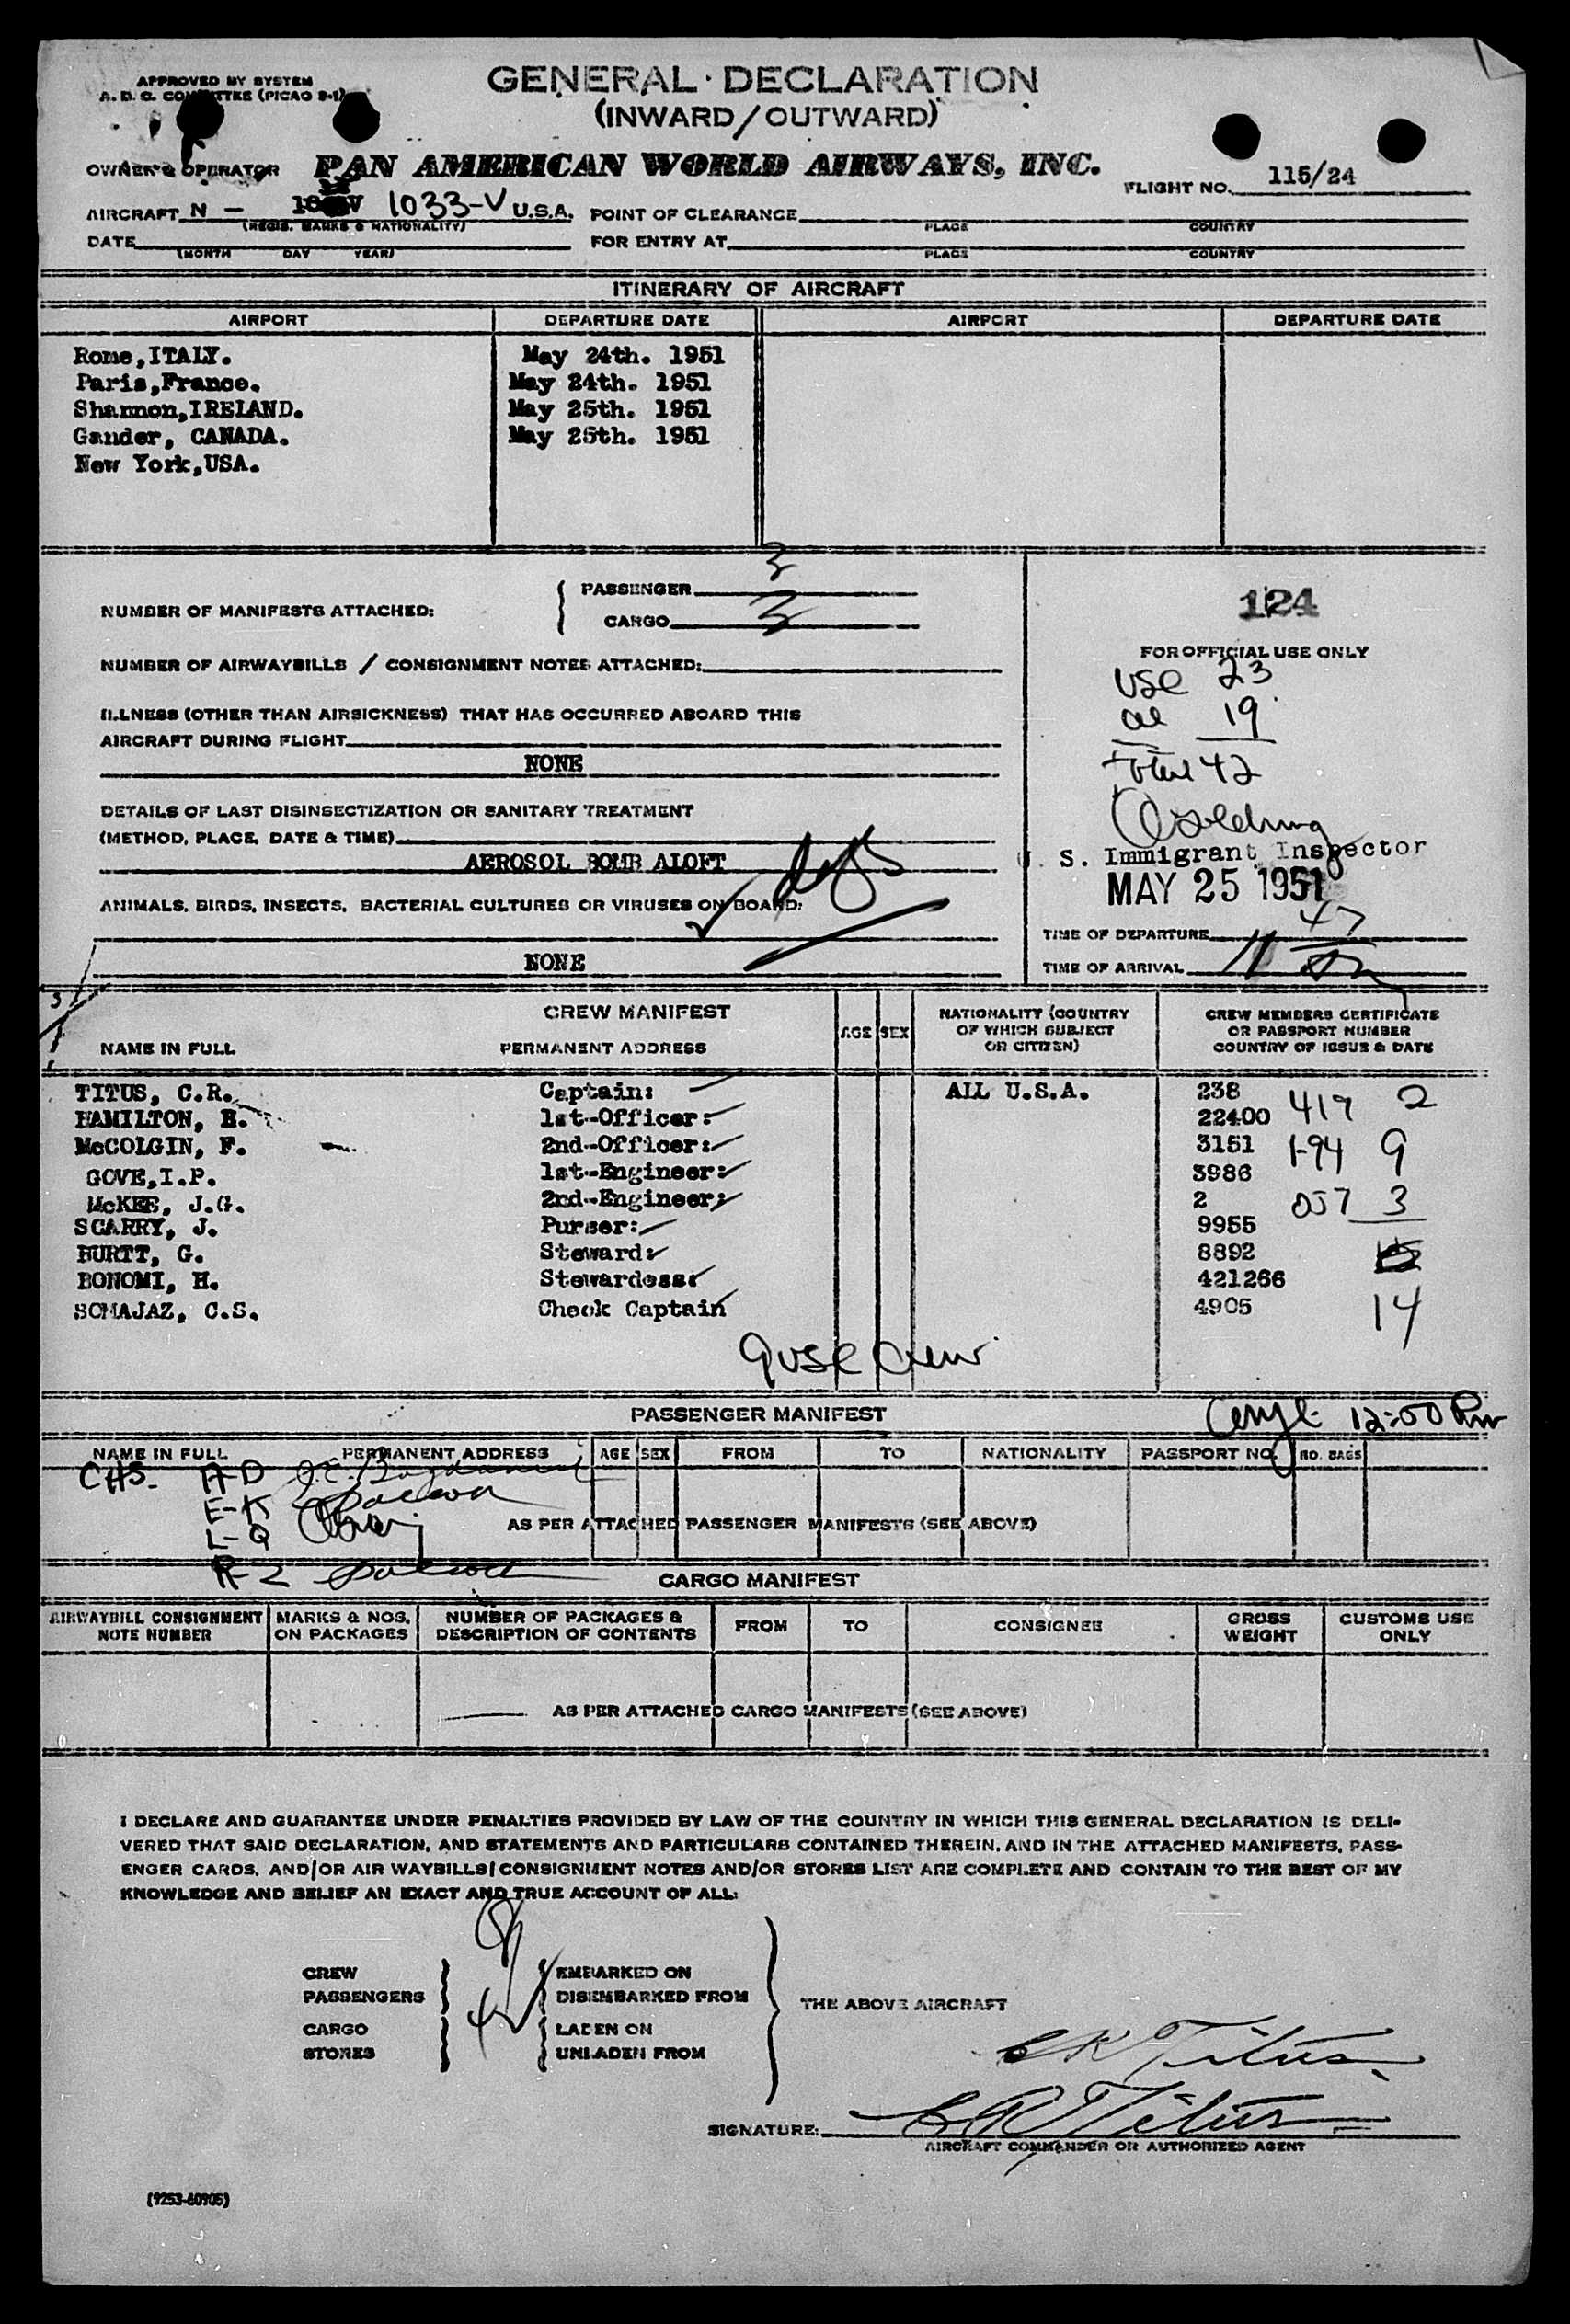 APPROVED BY SYSTEM
A. D. C. COMMITTEE (PICAO 9-1)
GENERAL DECLARATION
(INWARD/OUTWARD)
OWNER & OPERATOR PAN AMERICAN WORLD AIRWAYS, INC.
FLIGHT NO. 115/24
AIRCRAFT N - 1033-V U.S.A. POINT OF CLEARANCE
(REGIS. MARKS & NATIONALITY) PLACE COUNTRY
DATE FOR ENTRY AT
(MONTH DAY YEAR) PLACE COUNTRY
ITINERARY OF AIRCRAFT
AIRPORT DEPARTURE DATE AIRPORT DEPARTURE DATE
Rome,ITALY. May 24th. 1951
Paris,France. May 24th. 1951
Shannon,IRELAND. May 25th. 1951
Gander, CANADA. May 25th. 1951
New York,USA.
NUMBER OF MANIFESTS ATTACHED:
PASSENGER 3
CARGO 3
NUMBER OF AIRWAYBILLS / CONSIGNMENT NOTES ATTACHED:
ILLNESS (OTHER THAN AIRSICKNESS) THAT HAS OCCURRED ABOARD THIS
AIRCRAFT DURING FLIGHT
NONE
DETAILS OF LAST DISINSECTIZATION OR SANITARY TREATMENT
(METHOD, PLACE, DATE & TIME)
AEROSOL BOMB ALOFT
ANIMALS, BIRDS, INSECTS, BACTERIAL CULTURES OR VIRUSES ON BOARD:
dogs
NONE
124
FOR OFFICIAL USE ONLY
USC 23
al 19
Total 42
U. S. Immigrant Inspector
MAY 25 1951
TIME OF DEPARTURE
TIME OF ARRIVAL 11 47
CREW MANIFEST
NAME IN FULL PERMANENT ADDRESS AGE SEX NATIONALITY (COUNTRY OF WHICH SUBJECT OR CITIZEN) CREW MEMBERS CERTIFICATE OR PASSPORT NUMBER COUNTRY OF ISSUE & DATE
TITUS, C.R. Captain: ALL U.S.A. 238
HAMILTON, E. 1st-Officer: 22400 419 2
McCOLGIN, F. 2nd-Officer: 3151 I-94 9
GOVE,I.P. 1st-Engineer: 3986
McKEE, J.G. 2nd-Engineer: 2 057 3
SCARRY, J. Purser: 9955
BURTT, G. Steward: 8892
BONOMI, H. Stewardess: 421266
SOMAJAZ, C.S. Check Captain 4905 14
9 USC Crew
PASSENGER MANIFEST
12:00 Pm
NAME IN FULL PERMANENT ADDRESS AGE SEX FROM TO NATIONALITY PASSPORT NO. NO. BAGS
CHS. A-D
E-K
L-Q
R-Z
AS PER ATTACHED PASSENGER MANIFESTS (SEE ABOVE)
CARGO MANIFEST
AIRWAYBILL CONSIGNMENT NOTE NUMBER MARKS & NOS. ON PACKAGES NUMBER OF PACKAGES & DESCRIPTION OF CONTENTS FROM TO CONSIGNEE GROSS WEIGHT CUSTOMS USE ONLY
AS PER ATTACHED CARGO MANIFESTS (SEE ABOVE)
I DECLARE AND GUARANTEE UNDER PENALTIES PROVIDED BY LAW OF THE COUNTRY IN WHICH THIS GENERAL DECLARATION IS DELI-
VERED THAT SAID DECLARATION, AND STATEMENTS AND PARTICULARS CONTAINED THEREIN, AND IN THE ATTACHED MANIFESTS, PASS-
ENGER CARDS, AND/OR AIR WAYBILLS/CONSIGNMENT NOTES AND/OR STORES LIST ARE COMPLETE AND CONTAIN TO THE BEST OF MY
KNOWLEDGE AND BELIEF AN EXACT AND TRUE ACCOUNT OF ALL:
9
CREW EMBARKED ON
PASSENGERS DISEMBARKED FROM
42
THE ABOVE AIRCRAFT
CARGO LADEN ON
STORES UNLADEN FROM
C R Titus
SIGNATURE: C R Titus
AIRCRAFT COMMANDER OR AUTHORIZED AGENT
(9253-60905)